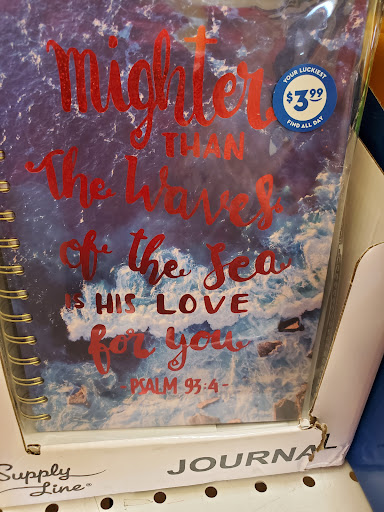 Mighter
THAN
The Waves
of the Sea
IS HIS LOVE
for you
- PSALM 93:4 -
YOUR LUCKIEST
$3.99
FIND ALL DAY
Supply Line®
JOURNAL